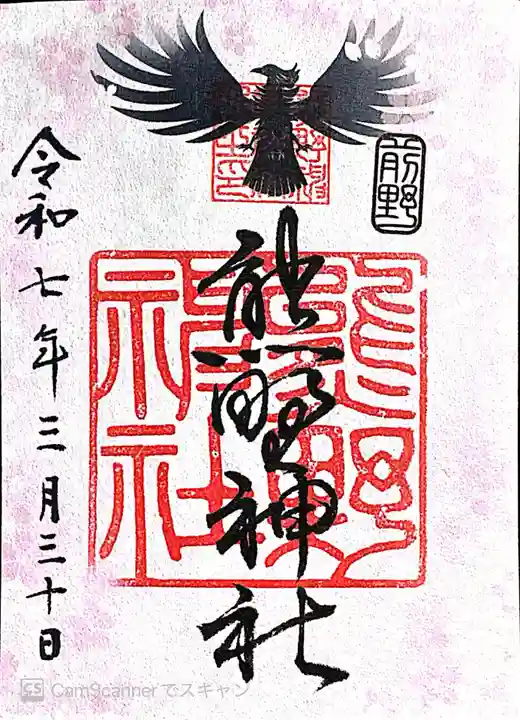 前野
熊野神社
令和七年三月三十日
CS CamScannerでスキャン